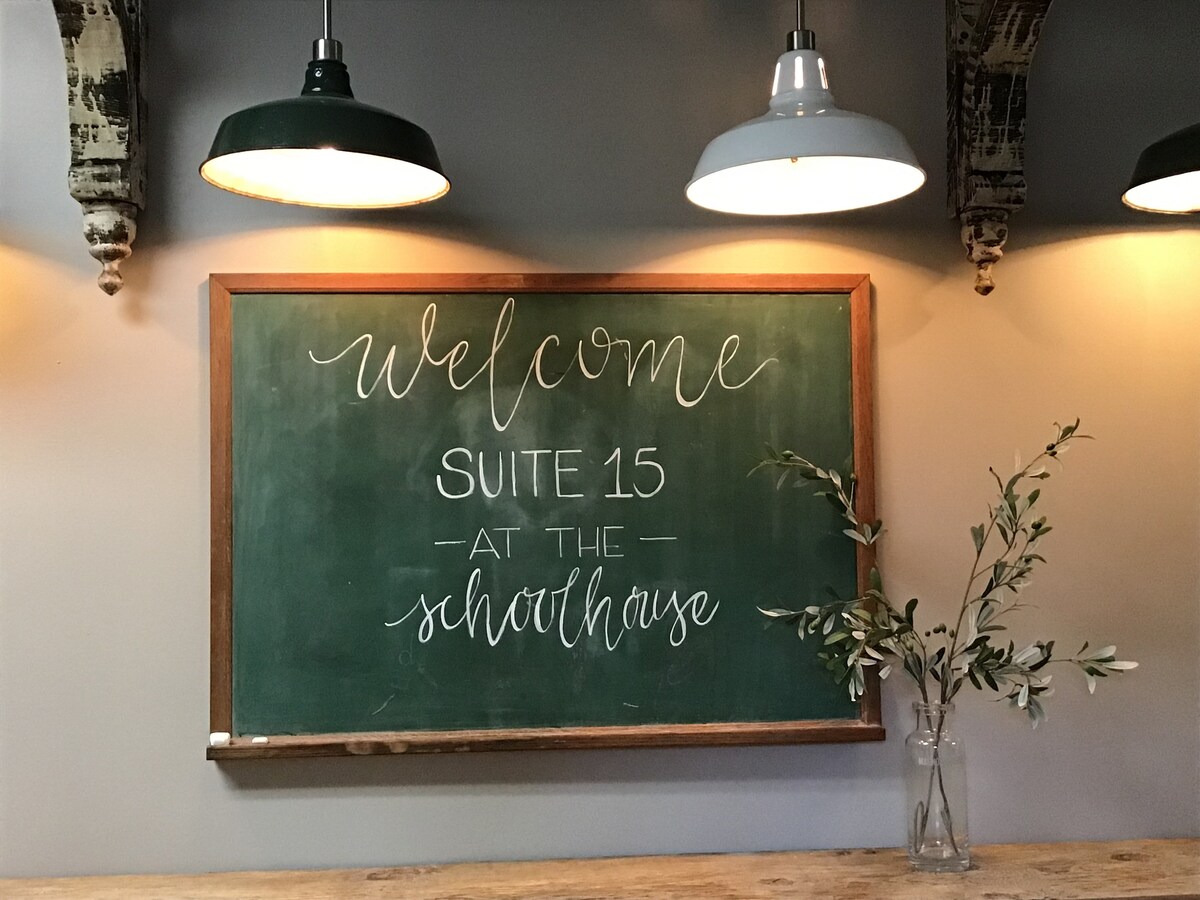 welcome
SUITE 15
- AT THE -
schoolhouse